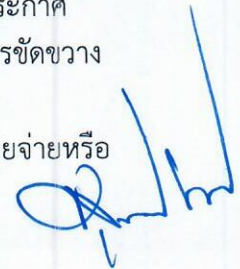 ระกาศ
รขัดขวาง
ยจ่ายหรือ